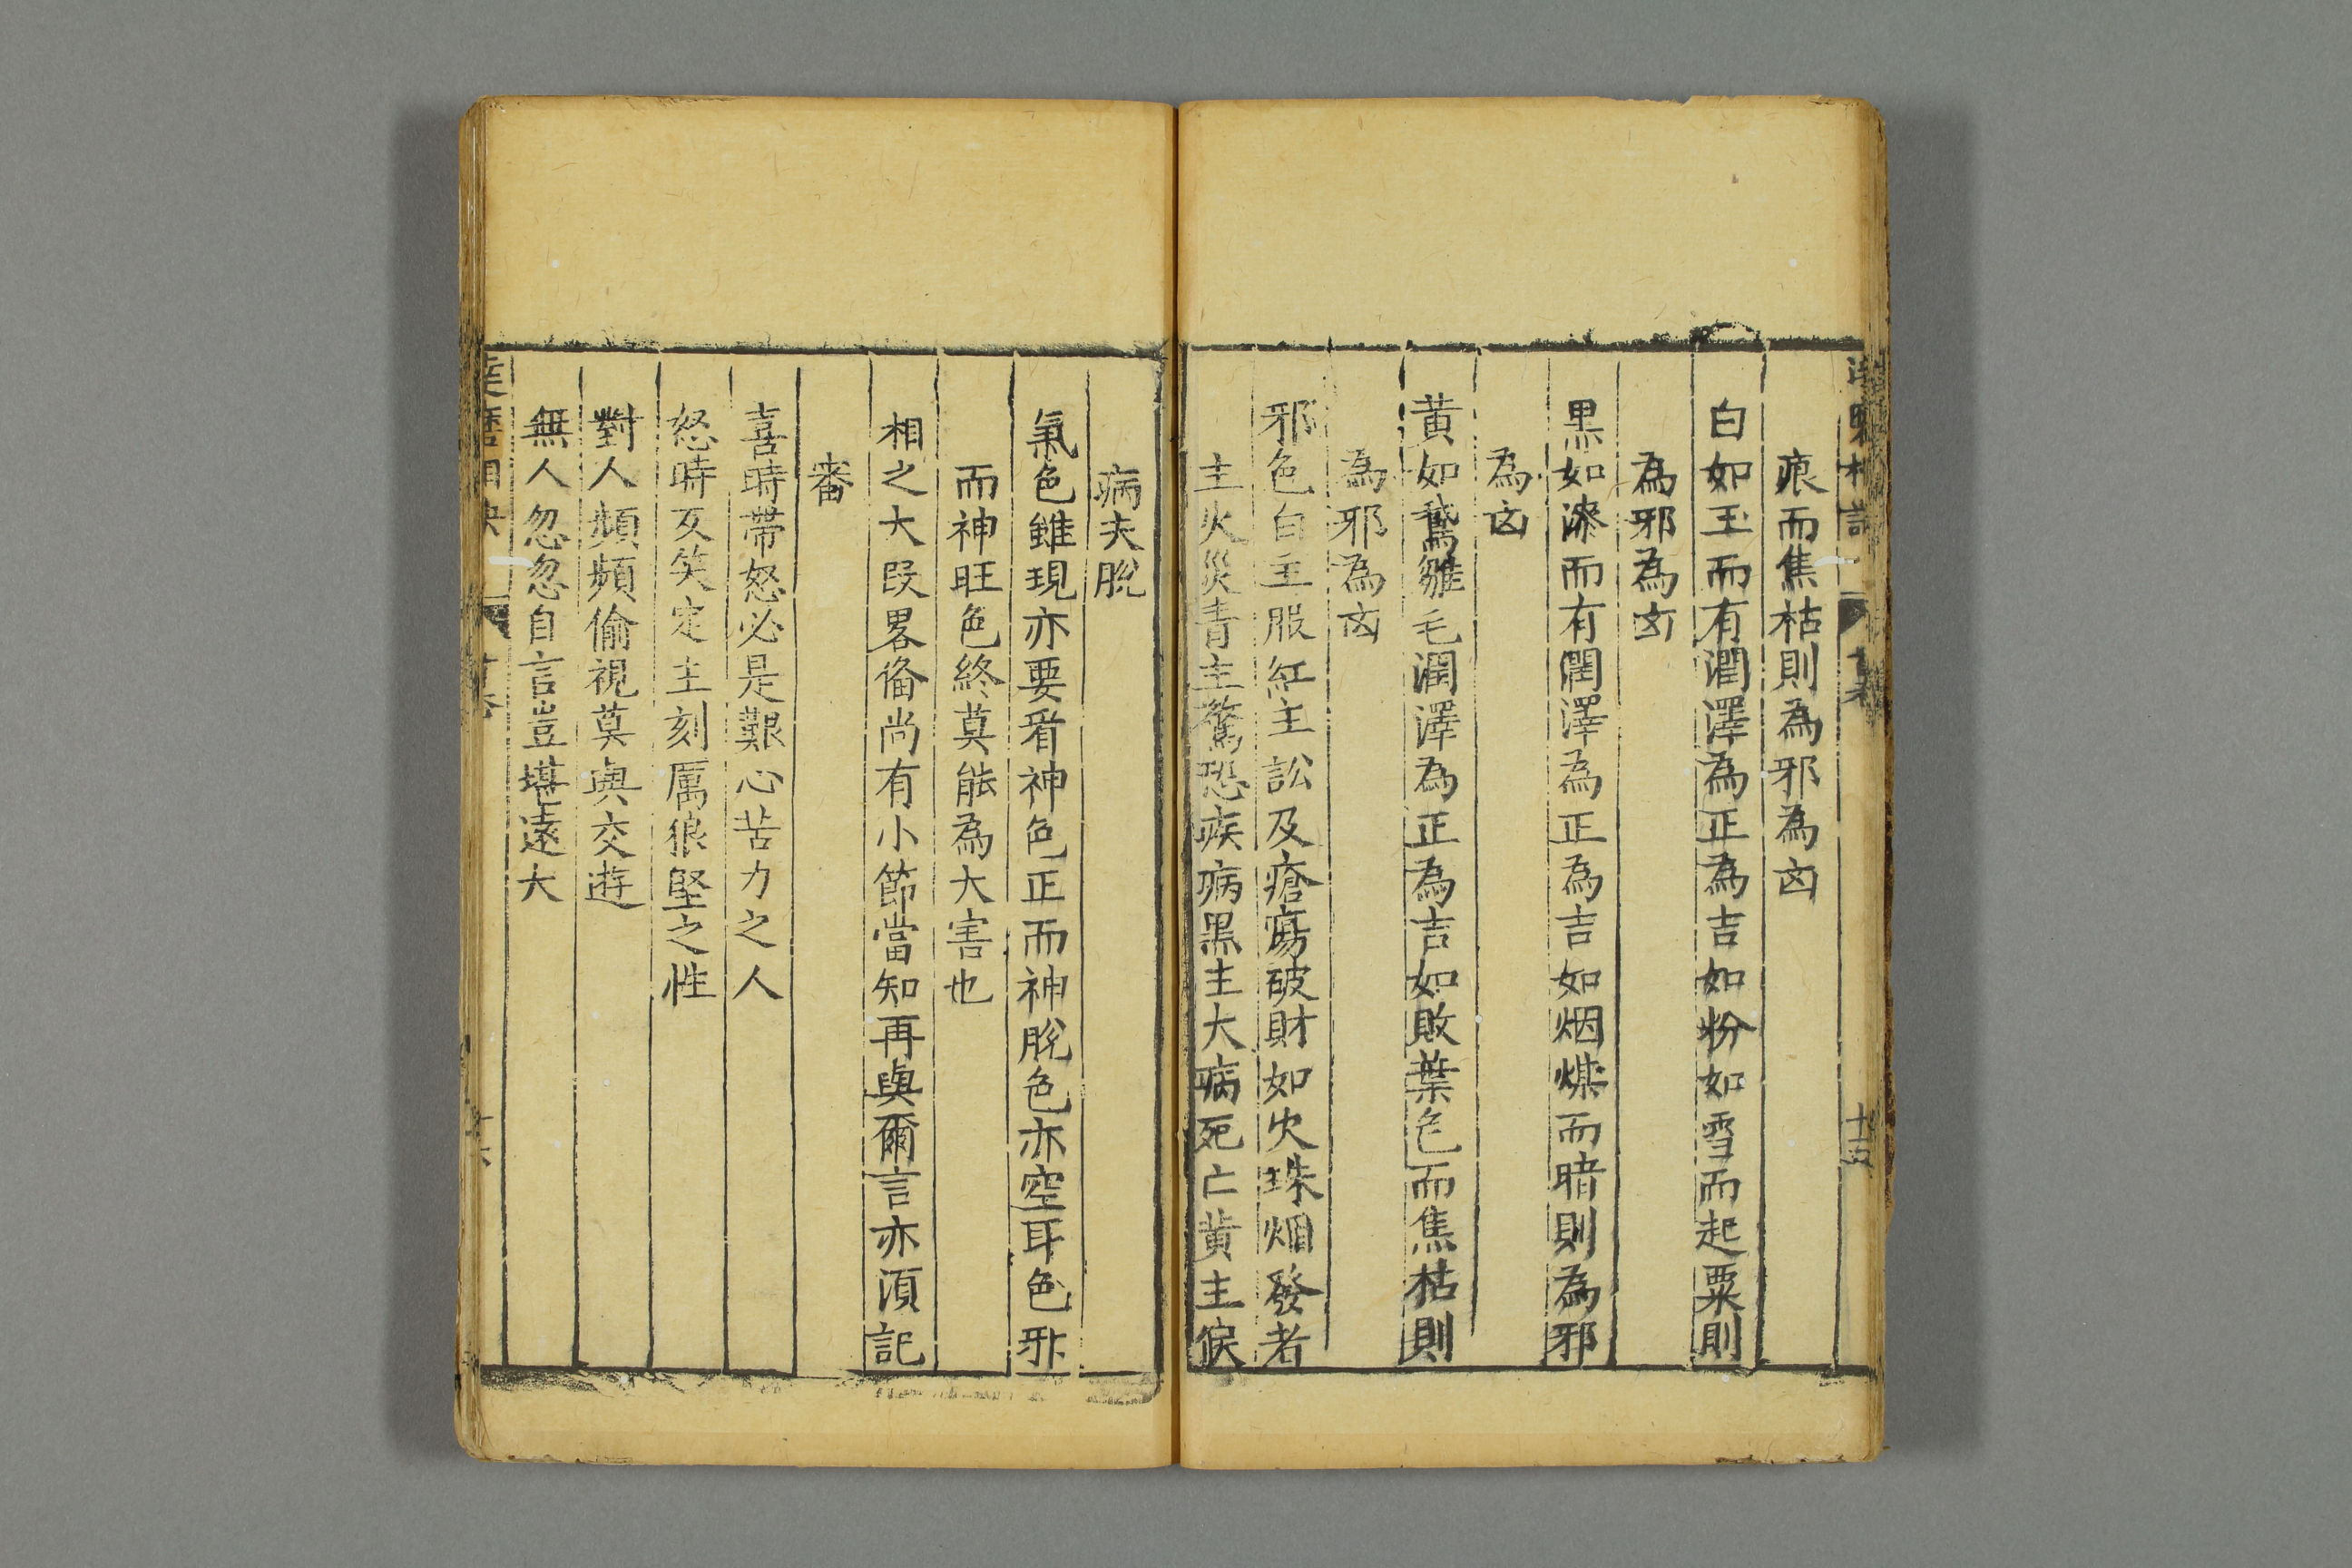 痕而焦枯則為邪為凶
白如玉而有潤澤為正為吉如粉如雪而起粟則
為邪為凶
黒如漆而有潤澤為正為吉如烟煤而暗則為邪
為凶
黄如鵞雛毛潤澤為正為吉如敗葉色而焦枯則
為邪為凶
邪色白主服紅主訟及瘡瘍破財如火珠焰發者
主火災青主驚恐疾病黒主大病死亡黄主
病夫脫
氣色雖現亦要看神色正而神脫色亦空耳色邪
而神旺色終莫能為大害也
相之大段畧俻尚有小節當知再與爾言亦湏記
審
喜時帶怒必是艱心苦力之人
怒時反笑定主刻厲狼堅之性
對人頻頻偷視莫與交遊
無人忽忽自言豈堪遠大
十五